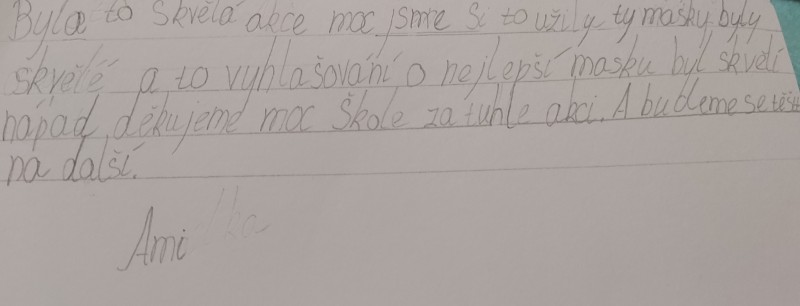 Byla to skvělá akce moc jsme si to užily ty masky byly
skvělé a to vyhlašování o nejlepší masku byl skvělí
nápad, děkujeme moc škole za tuhle akci. A budeme se těšit
na další.
Ami